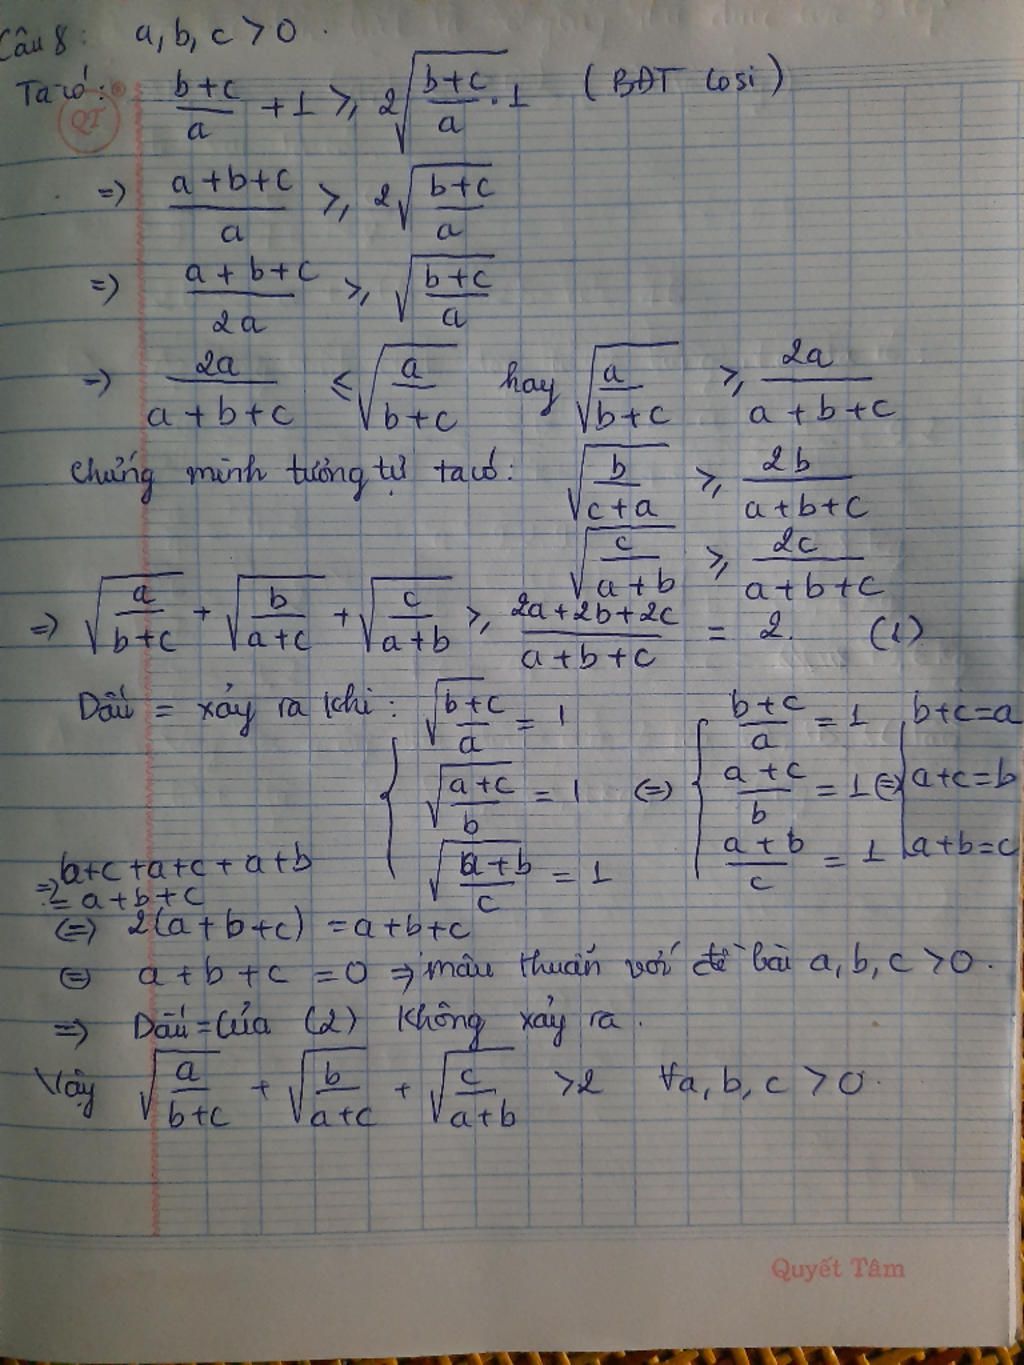 Câu 8: a, b, c > 0.
Ta có: (b+c)/a + 1 ≥ 2√((b+c)/a · 1) (BĐT Cosi)
QT
=> (a+b+c)/a ≥ 2√((b+c)/a)
=> (a+b+c)/(2a) ≥ √((b+c)/a)
=> 2a/(a+b+c) ≤ √(a/(b+c)) hay √(a/(b+c)) ≥ 2a/(a+b+c)
Chứng minh tương tự ta có: √(b/(c+a)) ≥ 2b/(a+b+c)
√(c/(a+b)) ≥ 2c/(a+b+c)
=> √(a/(b+c)) + √(b/(a+c)) + √(c/(a+b)) ≥ (2a+2b+2c)/(a+b+c) = 2. (1)
Dấu = xảy ra khi: { √((b+c)/a) = 1 { (b+c)/a = 1 { b+c=a
√((a+c)/b) = 1 <=> (a+c)/b = 1 <=> a+c=b
√((a+b)/c) = 1 (a+b)/c = 1 a+b=c
=> b+c+a+c+a+b
= a+b+c
<=> 2(a+b+c) = a+b+c
<=> a+b+c = 0 => mâu thuẫn với đề bài a, b, c > 0.
=> Dấu = của (2) không xảy ra.
Vậy √(a/(b+c)) + √(b/(a+c)) + √(c/(a+b)) > 2 ∀a, b, c > 0.
Quyết Tâm